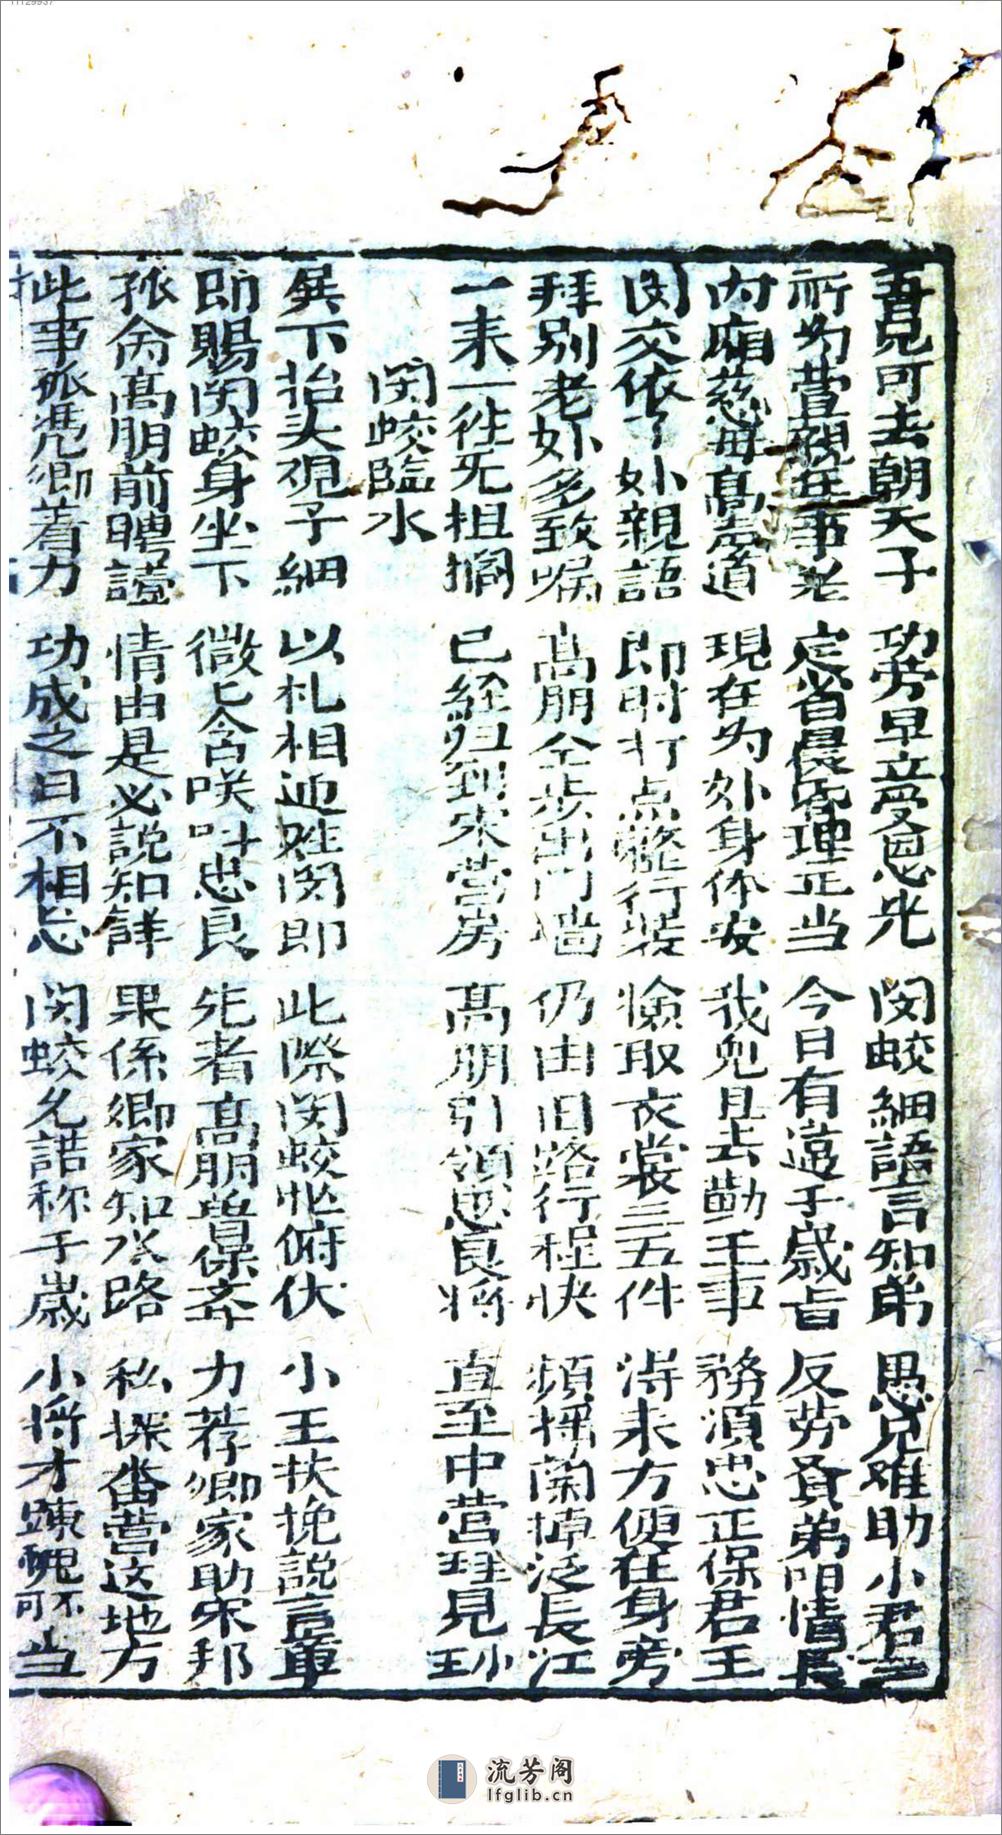 吾兄可去朝天子 功劳早立受恩光 闵蛟細語言知弟 思兄难助小君王
所为萱親在事老 定省晨昏理正当 今日有這千歲旨 反劳賢弟閙情長
内廂慈母髙声道 現在为外身体安 我児且去勤王事 務須忠正保君王
闵交依了妙親語 即时打点整行装 撿取衣裳三五件 浔来方便在身旁
拜别老妙多致喉 髙朋仝步出門墙 仍由旧路行程快 頻揮蘭掉泛長江
一来一徃无担擱 已經归到宋营房 髙朋引領忠良將 直至中营理見小王
闵蛟臨水
巽下抬头观子細 以札相迎姓闵郎 此際闵蛟忙俯伏 小王扶挽說言章
即賜闵蛟身坐下 微匕含咲叫忠良 先者髙朋曽保奏 力荐卿家助宋邦
孤命髙朋前聘證 情由是必說知詳 果係卿家知水路 私探畨营这地方
此事孤凴卿着力 功成之日不相忘 闵蛟允諾称千歲 小將才踈愧不可当